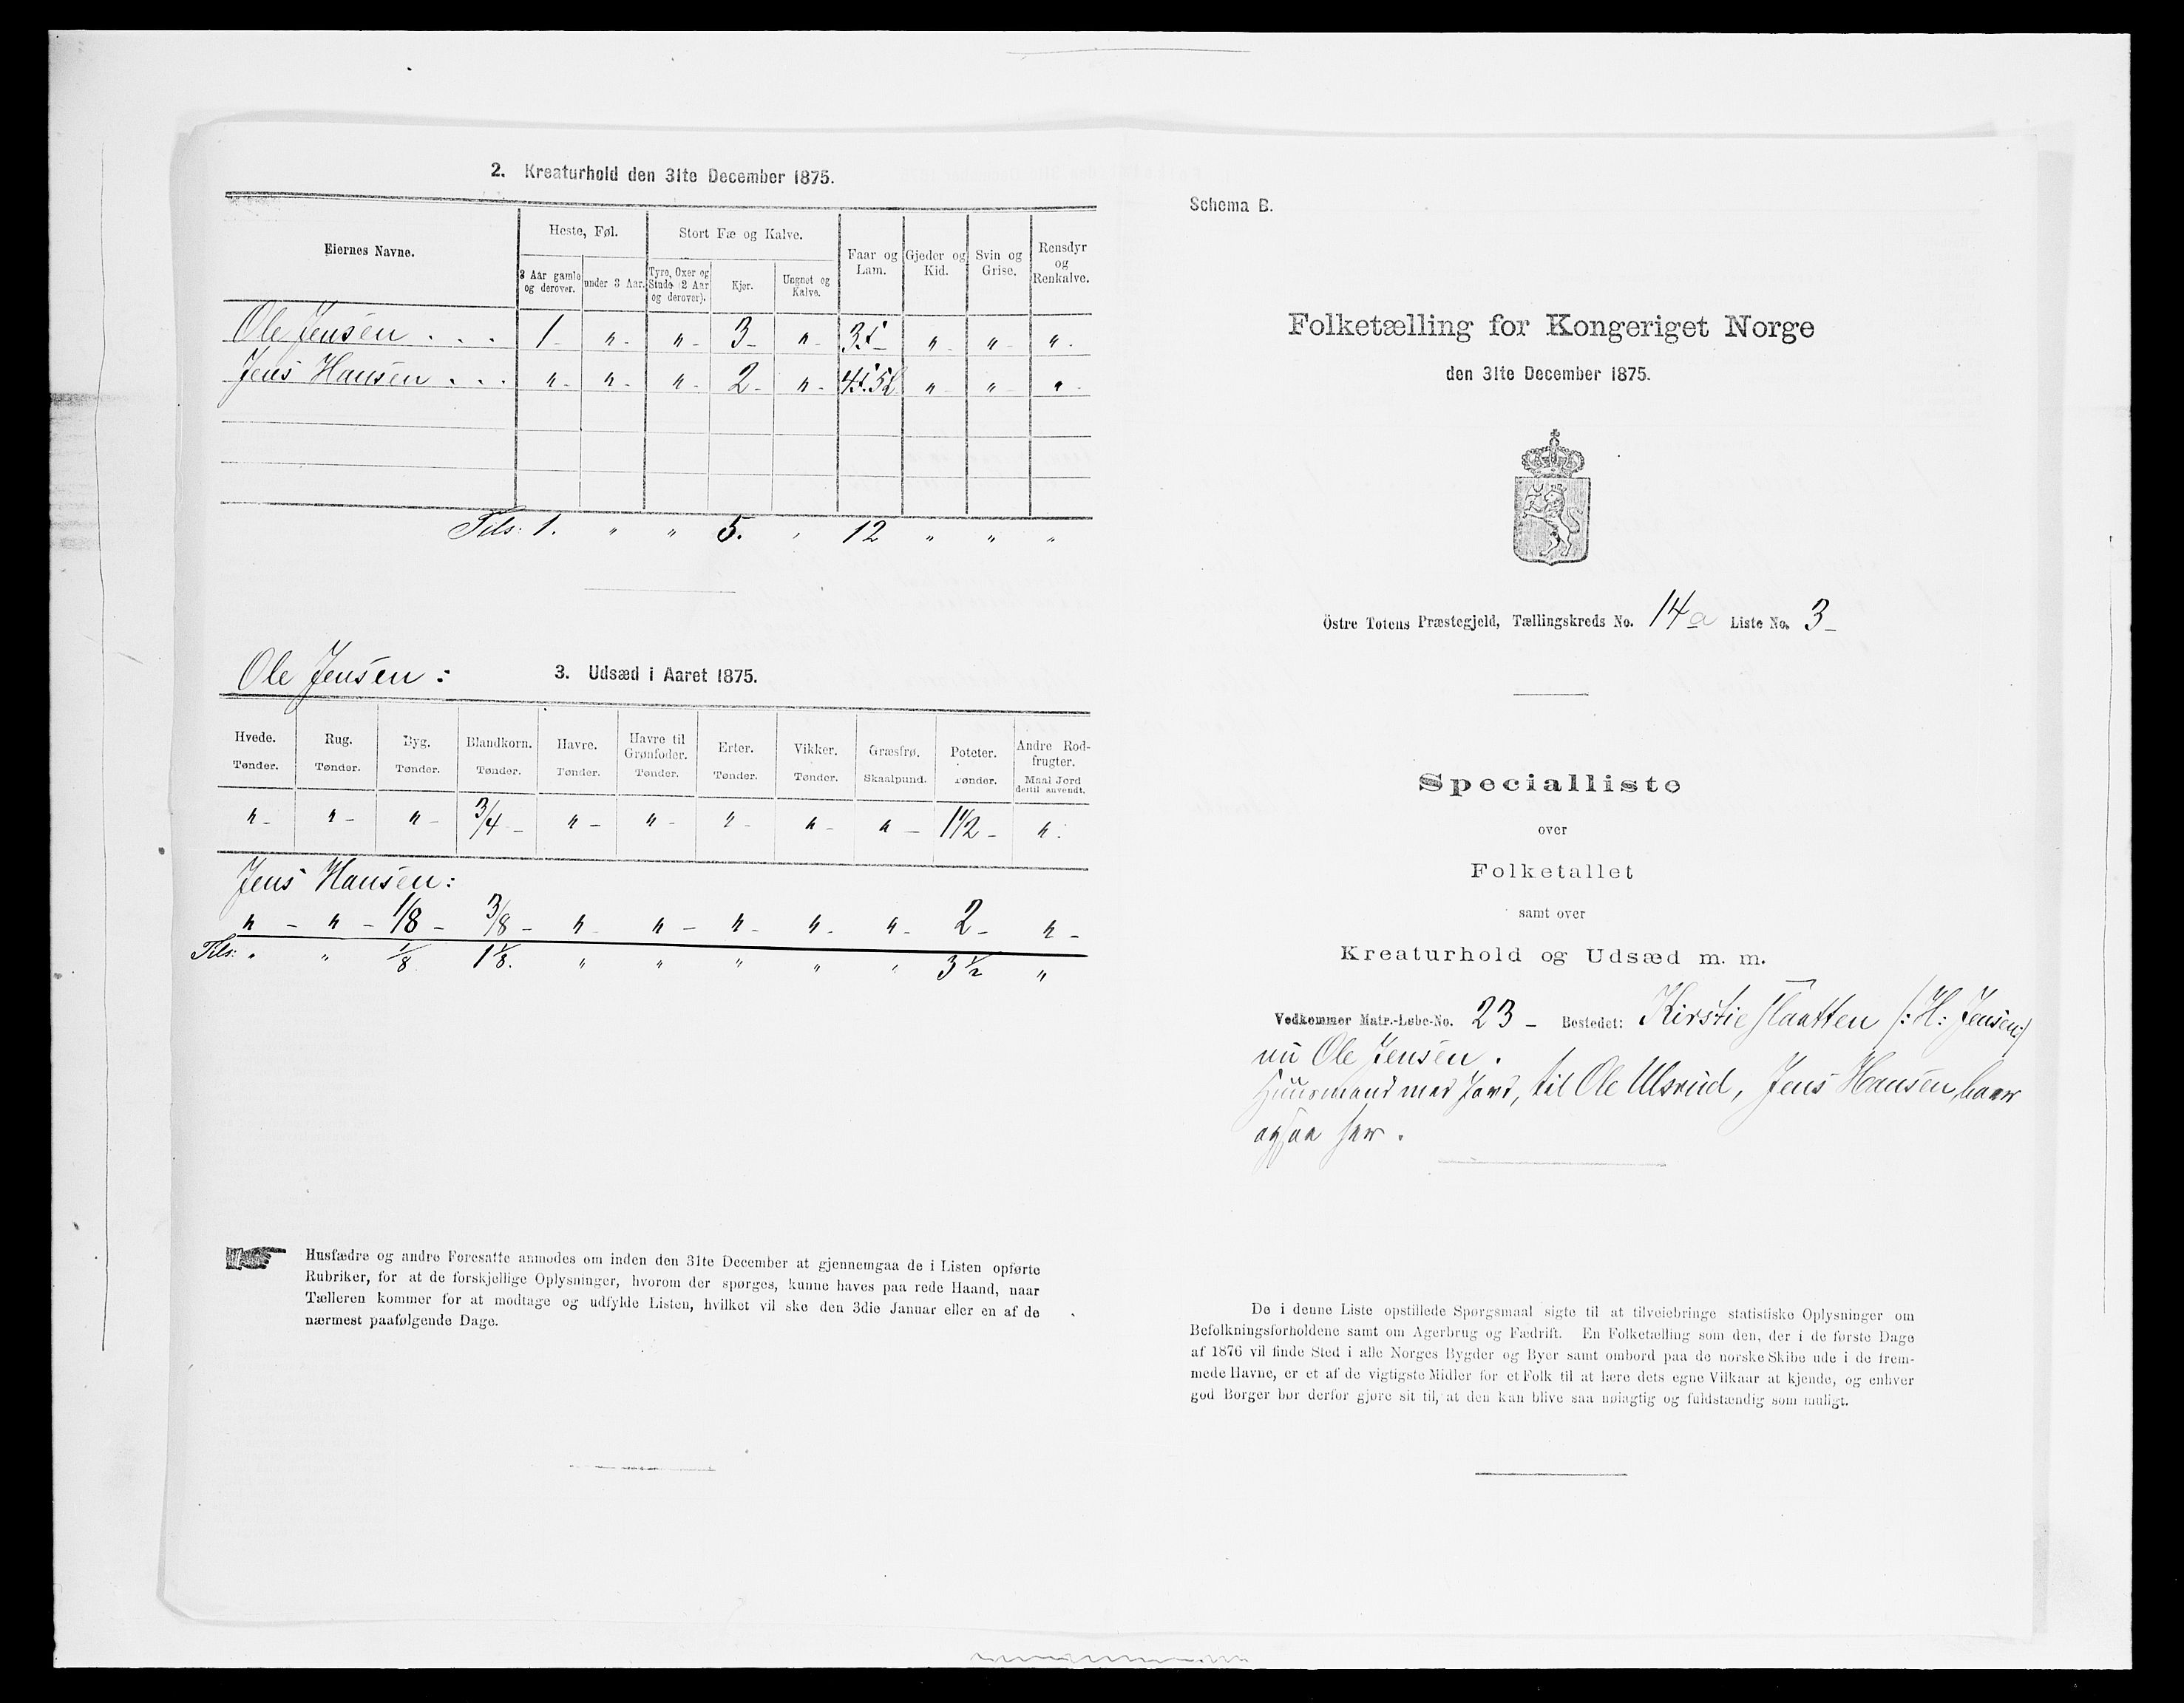 2. Kreaturhold den 31te December 1875.
Eiernes Navne.
Heste, Føl.
Stort Fæ og Kalve.
Faar og Lam.
Gjeder og Kid.
Svin og Grise.
Rensdyr og Renkalve.
3 Aar gamle og derover.
under 3 Aar.
Tyre, Oxer og Stude (2 Aar og derover).
Kjør.
Ungnøt og Kalve.
Ole Jensen . . . 1 - " - " - 3 - " - 3.f - " - " - " .
Jens Hansen . . . " - " - " - 2 - " - 4.f. 5 L " - " - " -
Tils: 1. " " 5. " 12 " " "
Ole Jensen :
3. Udsæd i Aaret 1875.
Hvede. Rug. Byg. Blandkorn. Havre. Havre til Grønfoder. Erter. Vikker. Græsfrø. Poteter. Andre Rodfrugter.
Tønder. Tønder. Tønder. Tønder. Tønder. Tønder. Tønder. Tønder. Skaalpund. Tønder. Maal Jord dertil anvendt.
" - " - " - 3/4 - " - " - " - " - " - 1 1/2 - " .
Jens Hansen :
" - " - 1/8 - 3/8 - " - " - " - " - " - 2 - " -
Tils: " " 1/8. 1 1/8. " " " " " 3 1/2 "
Husfædre og andre Foresatte anmodes om inden den 31te December at gjennemgaa de i Listen opførte
Rubriker, for at de forskjellige Oplysninger, hvorom der spørges, kunne haves paa rede Haand, naar
Tælleren kommer for at modtage og udfylde Listen, hvilket vil ske den 3die Januar eller en af de
nærmest paafølgende Dage.
Schema B.
Folketælling for Kongeriget Norge
den 31te December 1875.
Östre Totens Præstegjeld, Tællingskreds No. 14a Liste No. 3 -
Specialliste
over
Folketallet
samt over
Kreaturhold og Udsæd m. m.
Vedkommer Matr.-Løbe-No. 23 - Bostedet: Kirstieslaatten /: H: Jensen:/
nu Ole Jensen .
Huusmand med Jord, til Ole Ulsrud, Jens Hansen, boer
ogsaa her .
De i denne Liste opstillede Spørgsmaal sigte til at tilveiebringe statistiske Oplysninger om
Befolkningsforholdene samt om Agerbrug og Fædrift. En Folketælling som den, der i de første Dage
af 1876 vil finde Sted i alle Norges Bygder og Byer samt ombord paa de norske Skibe ude i de frem-
mede Havne, er et af de vigtigste Midler for et Folk til at lære dets egne Vilkaar at kjende, og enhver
god Borger bør derfor gjøre sit til, at den kan blive saa nøiagtig og fuldstændig som muligt.